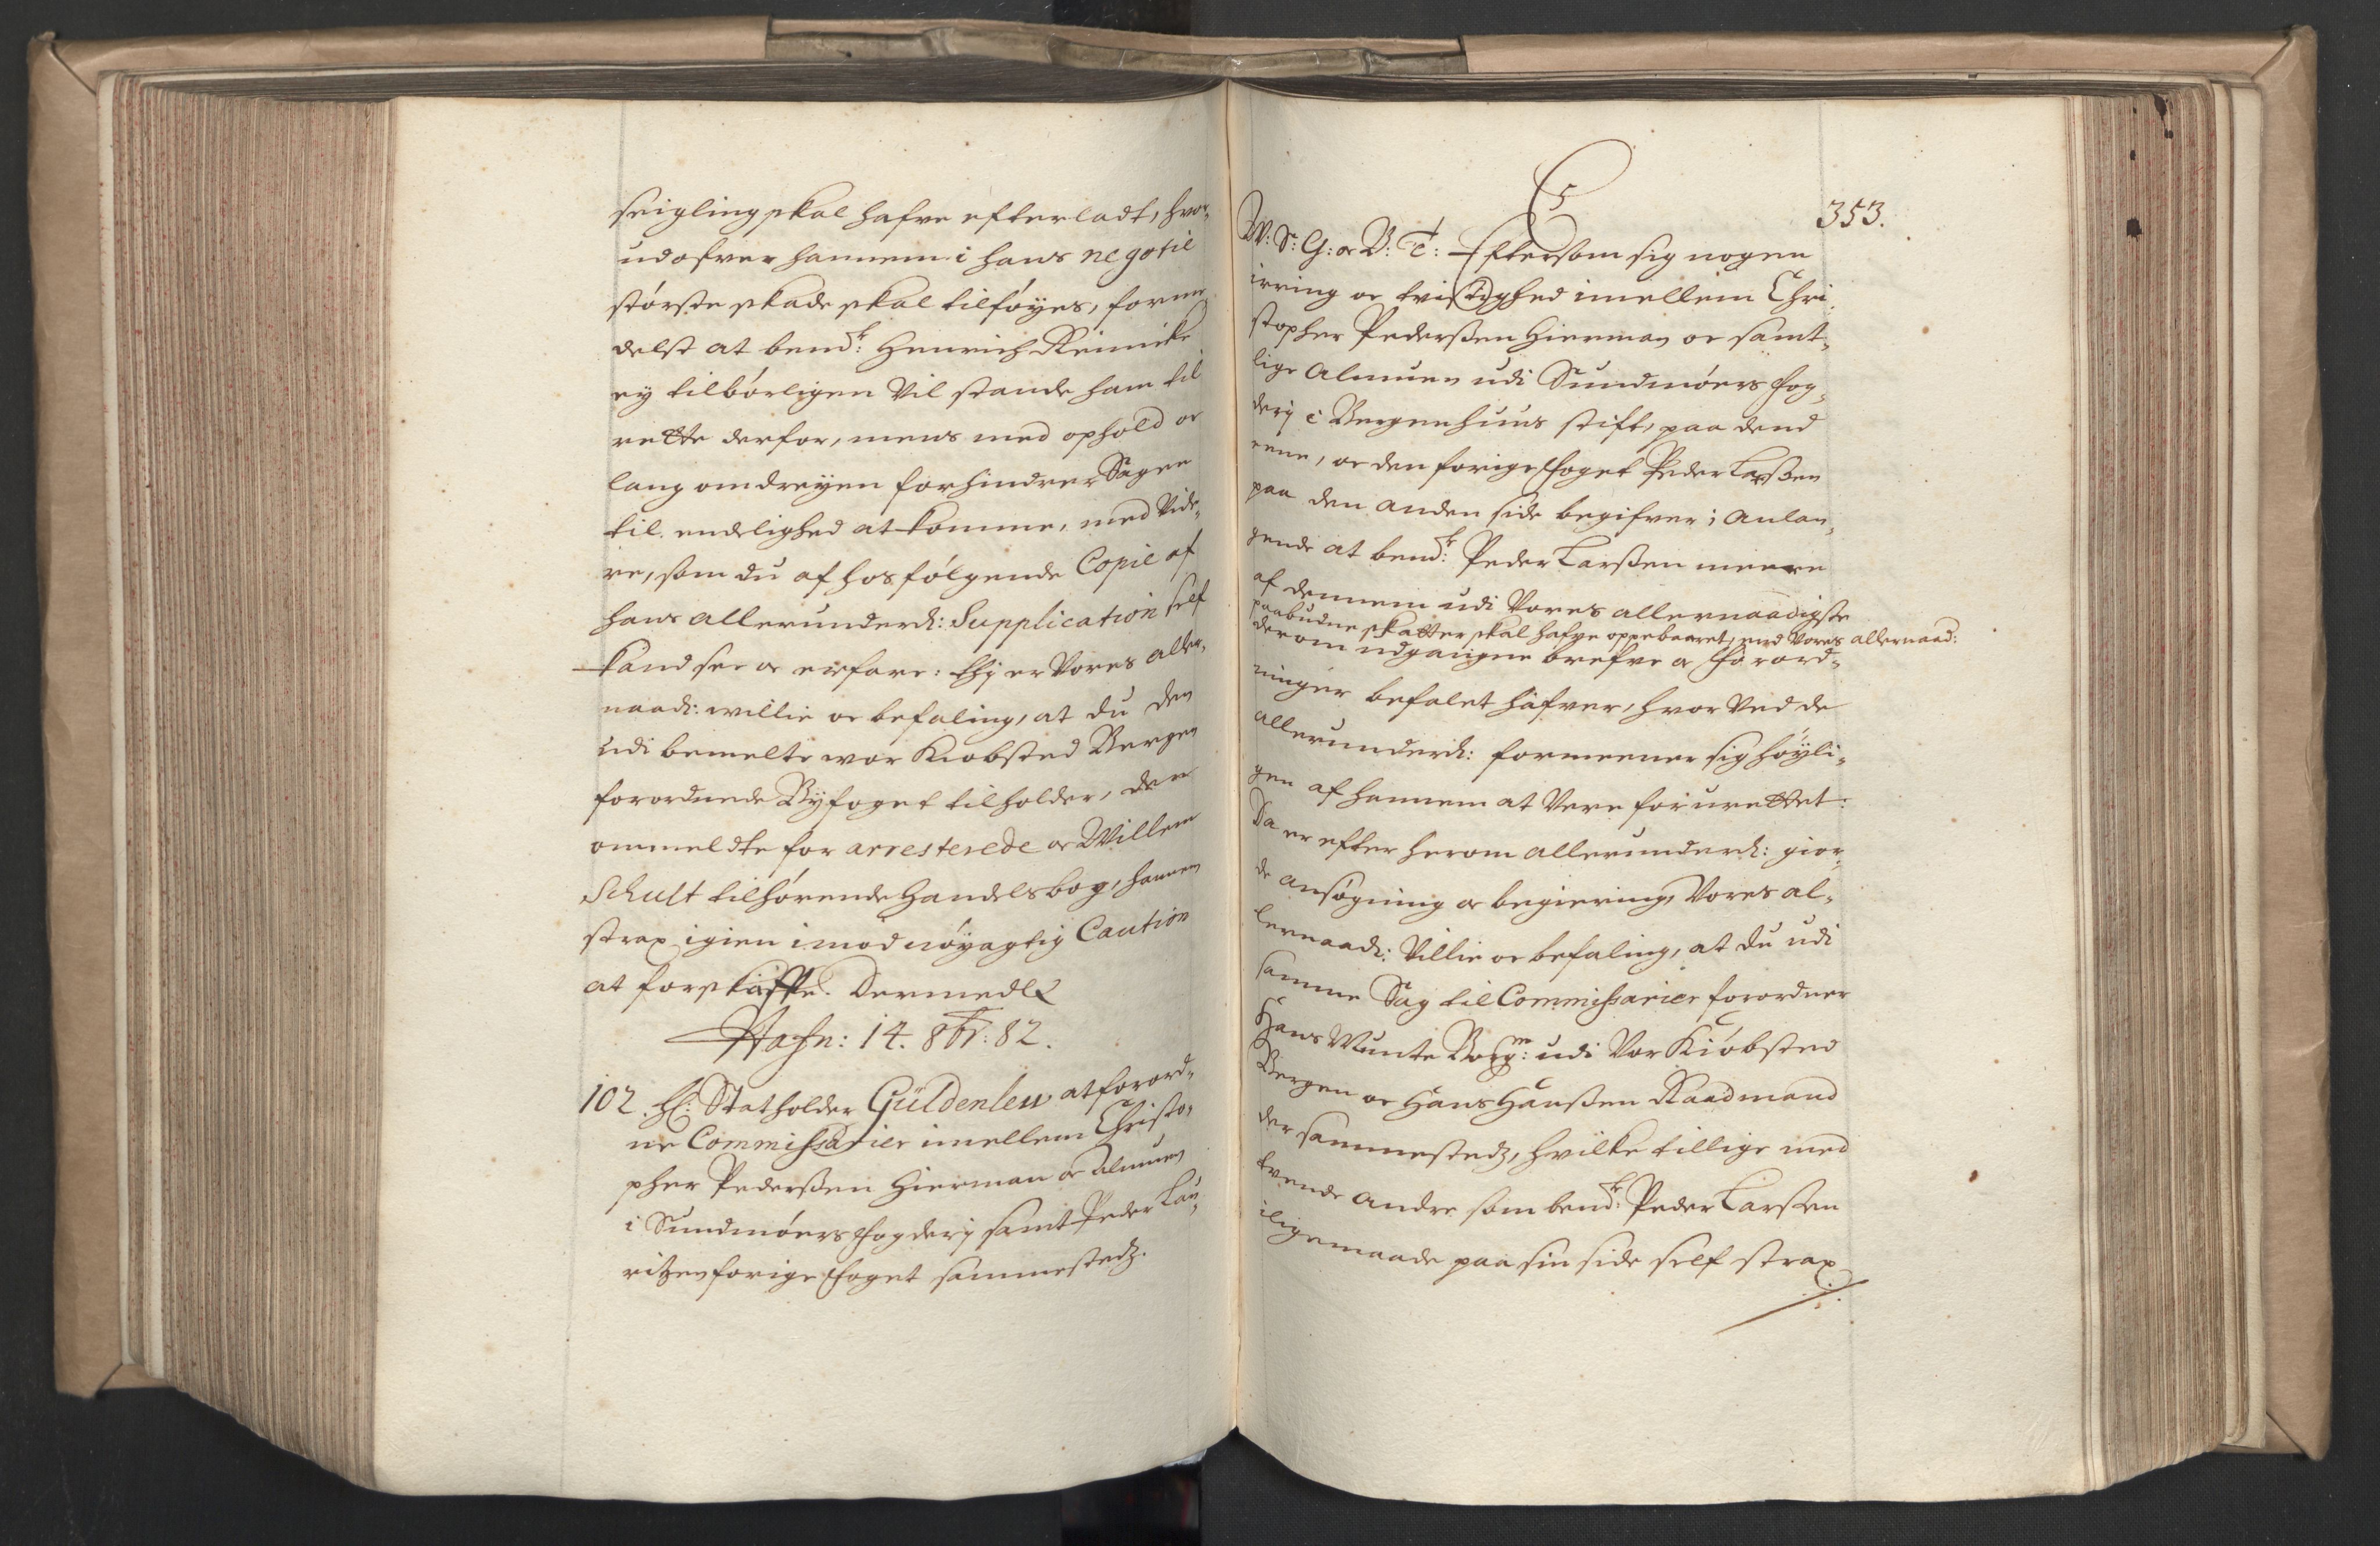 seigling skal hafve efterladt, hvor,
udofver hannem i hans negotie
störste skade skal tilföyes, forme,
delst at bemdt: Henrich Reinicke
ey tilbörligen vil stande ham til
rette derfor, mens med ophold oc
lang omdreyen forhindrer Sagen
til endelighed at komme, med vide,
re, som du af hosfölgende Copie af
hans allerunderd: Supplication self
kand see oc erfare: thj er Vores aller,
naadr: willie oc befaling, at du den
udi bemelte wor Kiobsted Bergen
forordnede Byfoget tilholder, den
ommeldte for arresterede oc Willem
Schult tilhörende Handelsbog, hannem
strax igien imod nöyagtig Caution
at forskaffe. Dermedl
Hafn: 14. 8br: 82.
102. H: Statholder Güldenlew at forord,
ne Commissarier imellem Christo,
pher Pederssen Hierman oc Almuen
i Sundmöers fogderj samt Peder Lau,
ritzen forige foget sammestedz.
353.
C5
W: S: G: oc V: T: Eftersom sig nogen
irring oc tvistighed imellem Chri,
stopher Pederssen Hierman oc samt,
lige Almuen udi Sundmöers fog,
derj i Bergenhuus stift, paa dend
eene, oc den forige foget Peder Larssen
paa den anden side begifver; anlan,
gende at bemdt: Peder Larssen meere
af dennem udi Vores allernaadigste
paabudne skatter skal hafve oppebaaret, end Vores allernaad:
derom udgangne brefve oc forord,
ninger befalet hafver, hvor ved de
allerunderd: formeener sig höyli,
gen af hannem at vere forurettet:
Da er efter herom allerunderd: gior,
de ansögning oc begiering, Vores al,
lernaadr: Villie oc befaling, at du udi
samme Sag til Commissarier forordner
Hans Munte Borgm: udi Vor Kiöbsted
Bergen oc Hans Hanssen Raadmand
der sammestedz, hvilke tillige med
tvende andre som bemdt: Peder Larssen
iligemaade paa sin side self strax